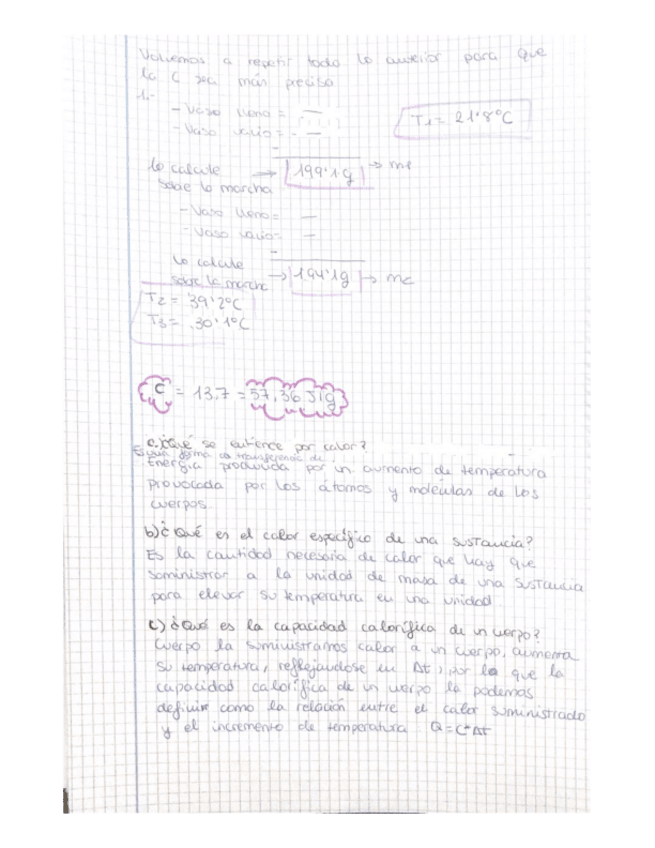 Volvemos a repetir todo lo anterior para que
la C sea más precisa
1.-
- Vaso lleno = —
- Vaso vacío = - —
T1 = 21'8ºC
lo calcule → 199'1g → mf
sobre la marcha
- Vaso lleno = —
- Vaso vacío = —
lo calcule
sobre la marcha → 194'1g → mc
T2 = 39'2ºC
T3 = 30'1ºC
C = 13,7 = 57,36 J/g
a) ¿Qué se entiende por calor?
Es una forma de transferencia de
Energía producida por un aumento de temperatura
provocada por los átomos y moléculas de los
cuerpos.
b) ¿Qué es el calor específico de una sustancia?
Es la cantidad necesaria de calor que hay que
suministrar a la unidad de masa de una sustancia
para elevar su temperatura en una unidad
c) ¿Qué es la capacidad calorífica de un cuerpo?
Cuerpo la suministramos calor a un cuerpo, aumenta
su temperatura, reflejandose en Δt, por lo que la
capacidad calorífica de un cuerpo la podemos
definir como la relación entre el calor suministrado
y el incremento de temperatura Q=C*Δt